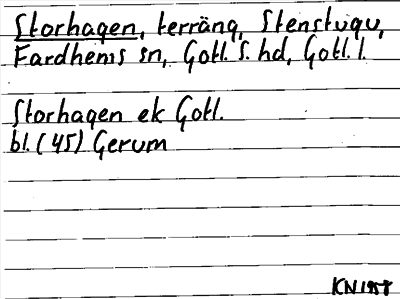 Storhagen, terräng, Stenstugu,
Fardhems sn, Gotl. S. hd, Gotl. l.
Storhagen ek Gotl.
bl. (45) Gerum